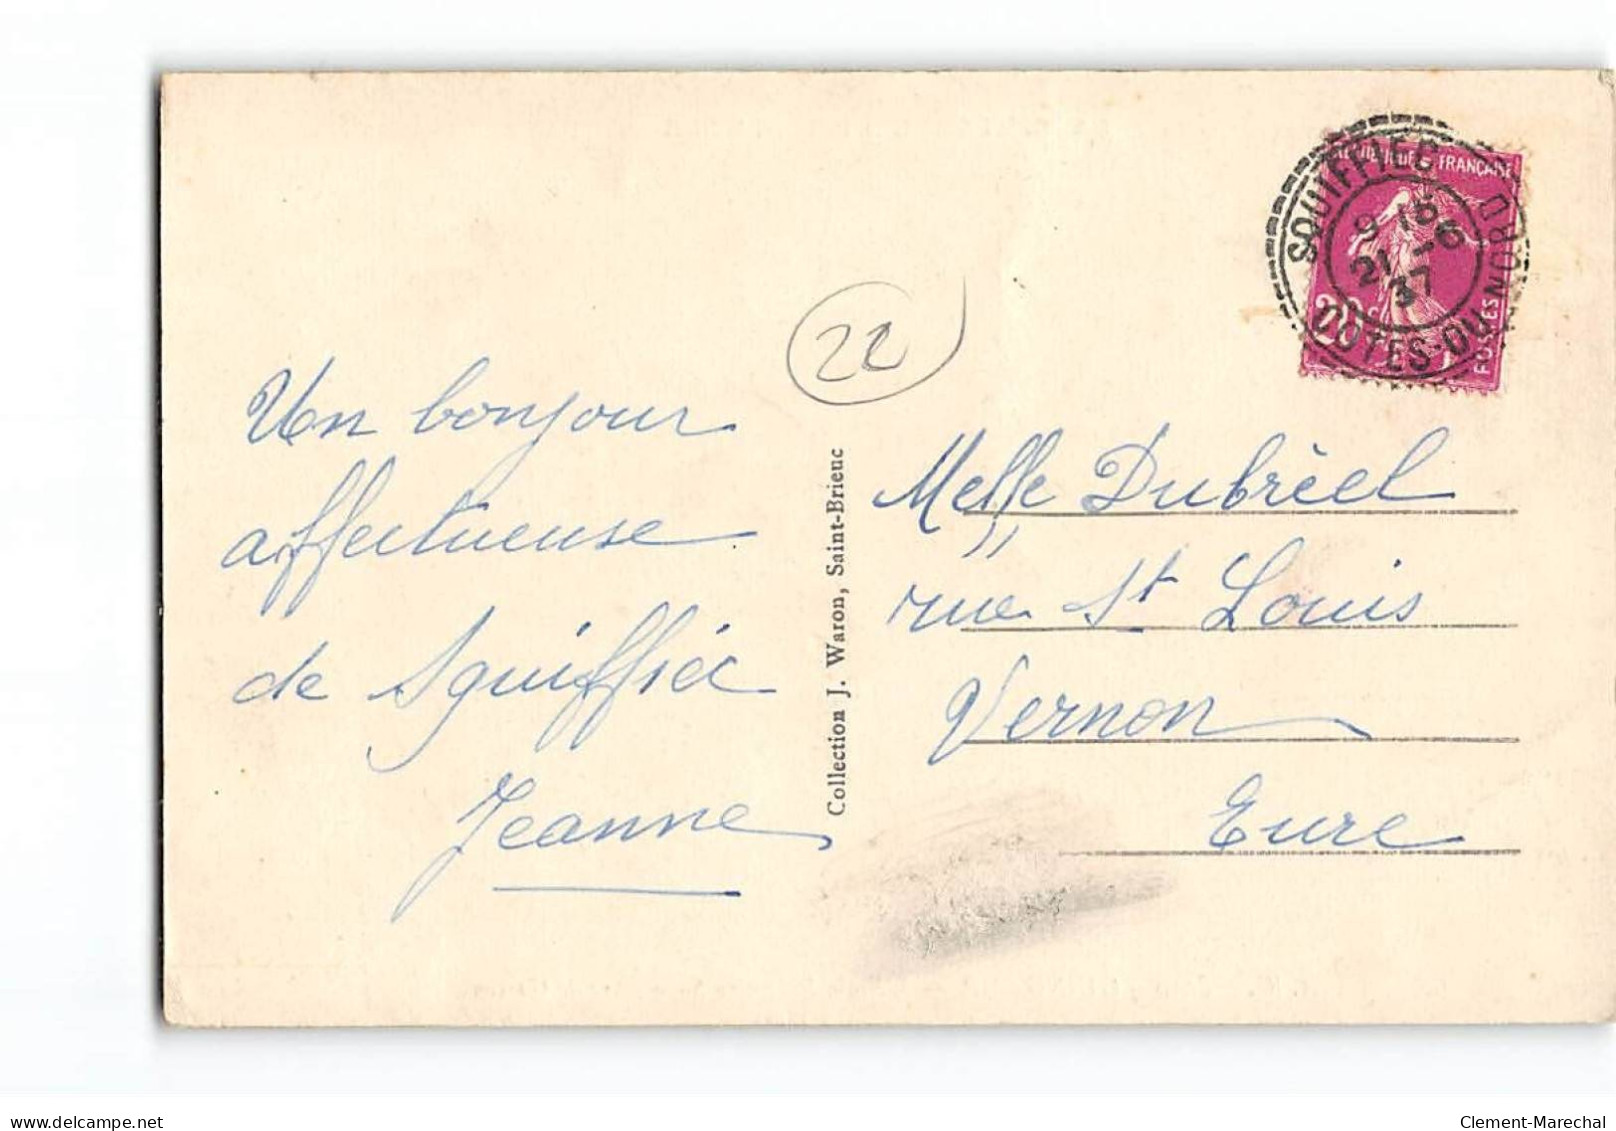 Un bonjour
affectueuse
de Squiffiéc
Jeanne
22
Collection J. Waron, Saint-Brieuc
SQUIFFIEC
9 15
21 -6
37
COTES-DU-NORD
FRANÇAISE
20c
POSTES
Melle Dubréel
rue St Louis
Vernon
Eure
delcampe.net
Clement-Marechal